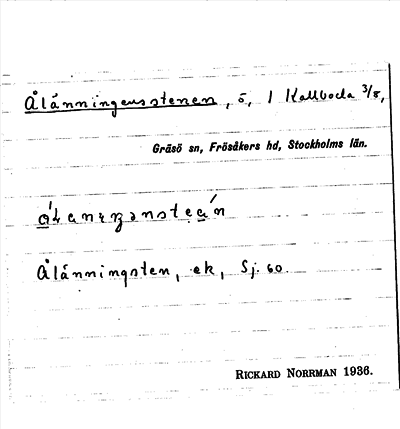 Ålänningensstenen, ö, I Kallboda 3/8,
Gräsö sn, Frösåkers hd, Stockholms län.
Ålänningsten, ek, Sj. 60
RICKARD NORRMAN 1936.